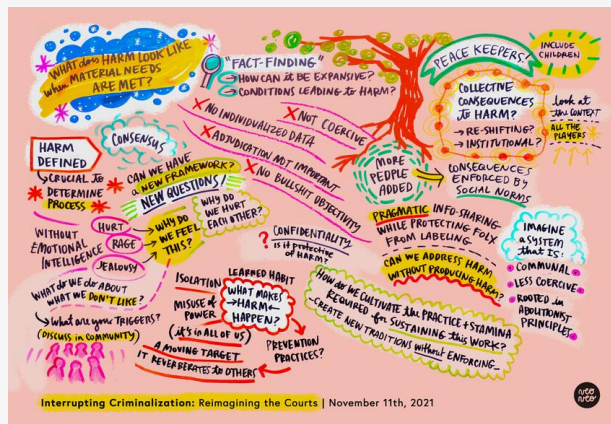 WHAT does HARM LOOK LIKE
when MATERIAL NEEDS
ARE MET?
"FACT-FINDING"
→ HOW CAN it BE EXPANSIVE?
→ CONDITIONS LEADING to HARM?
PEACE KEEPERS!
INCLUDE
CHILDREN
X NO INDIVIDUALIZED DATA
X NOT COERCIVE
X ADJUDICATION NOT IMPORTANT
X NO BULLSHIT OBJECTIVITY
COLLECTIVE
CONSEQUENCES
to HARM?
→ RE-SHIFTING?
→ INSTITUTIONAL?
look at
the CONTEXT
ALL the
PLAYERS
HARM
DEFINED
CRUCIAL to
DETERMINE
PROCESS
CONSENSUS
CAN WE HAVE
a NEW FRAMEWORK?
NEW QUESTIONS!
MORE
PEOPLE
ADDED!
CONSEQUENCES
ENFORCED BY
SOCIAL NORMS
WITHOUT
EMOTIONAL
INTELLIGENCE
HURT
RAGE
JEALOUSY
WHY DO
WE FEEL
THIS?
WHY DO
WE HURT
EACH OTHER?
? CONFIDENTIALITY
is it PROTECTIVE
of HARM?
PRAGMATIC INFO-SHARING
WHILE PROTECTING FOLX
FROM LABELING
CAN WE ADDRESS HARM
WITHOUT PRODUCING HARM?
IMAGINE
a SYSTEM
that IS:
COMMUNAL
LESS COERCIVE
ROOTED in
ABOLITIONIST
PRINCIPLES
WHAT do WE DO ABOUT
WHAT WE DON'T LIKE?
↳ WHAT are you TRIGGERS?
(DISCUSS in COMMUNITY)
ISOLATION
LEARNED HABIT
MISUSE of
POWER
WHAT MAKES
→ HARM ←
HAPPEN?
(it's in ALL OF US)
A MOVING TARGET
IT REVERBERATES to OTHERS
PREVENTION
PRACTICES?
HOW do WE CULTIVATE the PRACTICE + STAMINA
REQUIRED for SUSTAINING this WORK?
- CREATE NEW TRADITIONS without ENFORCING
Interrupting Criminalization: Reimagining the Courts | November 11th, 2021
neo
neo